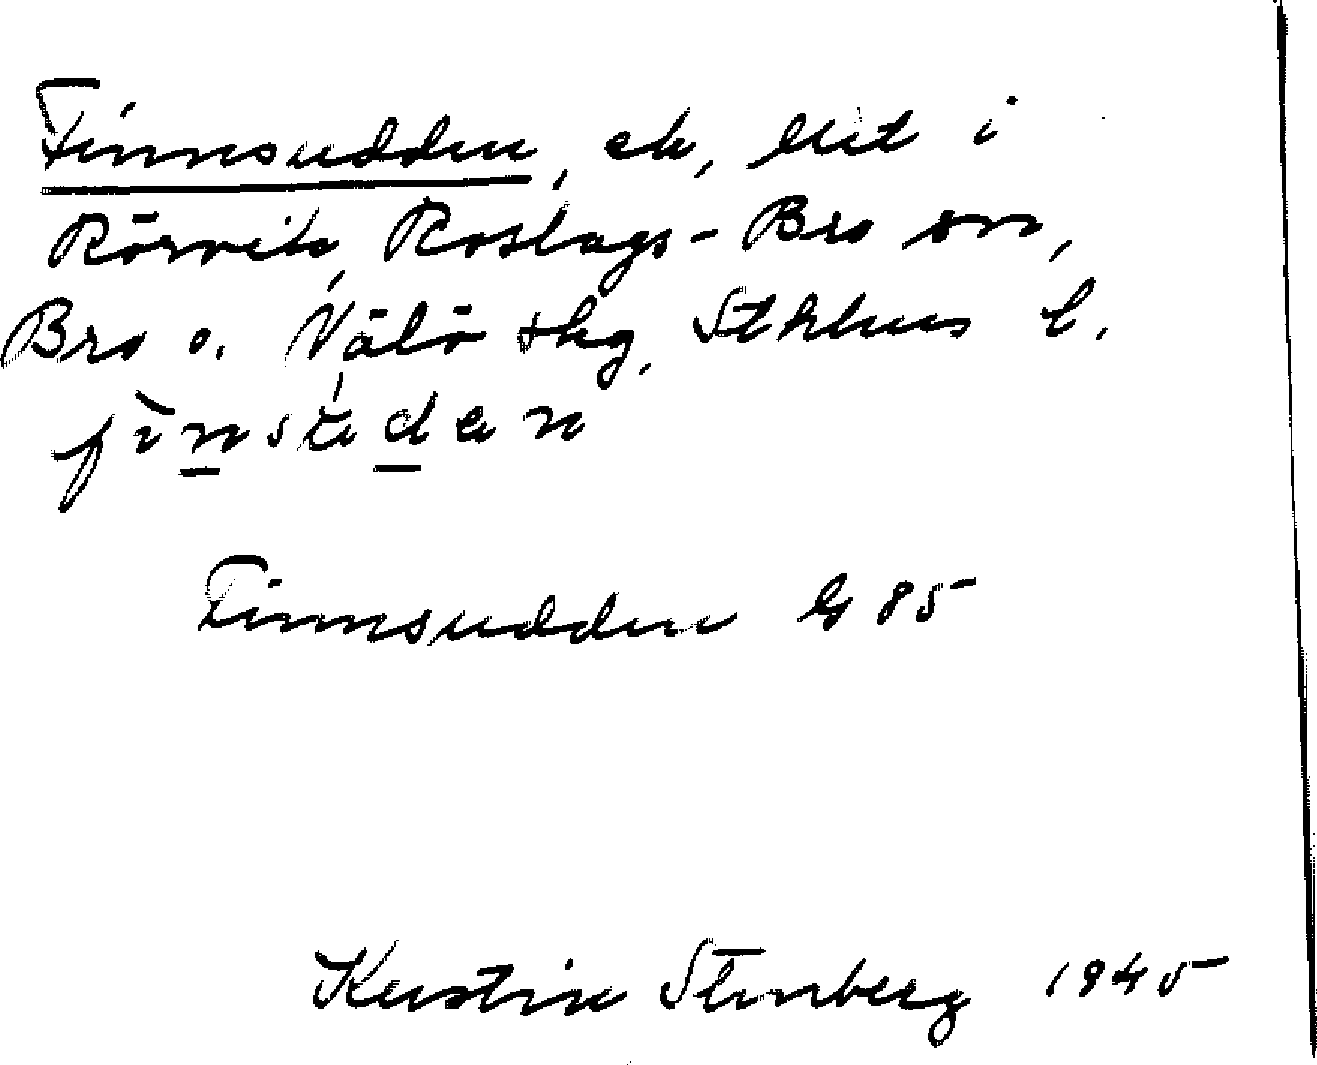 Finnsudden, ek, lht i
Rörvik, Roslags-Bro sn,
Bro o. Vätö skg, Sthlms l.
Finnsudden G 85
Kerstin Stenberg 1945